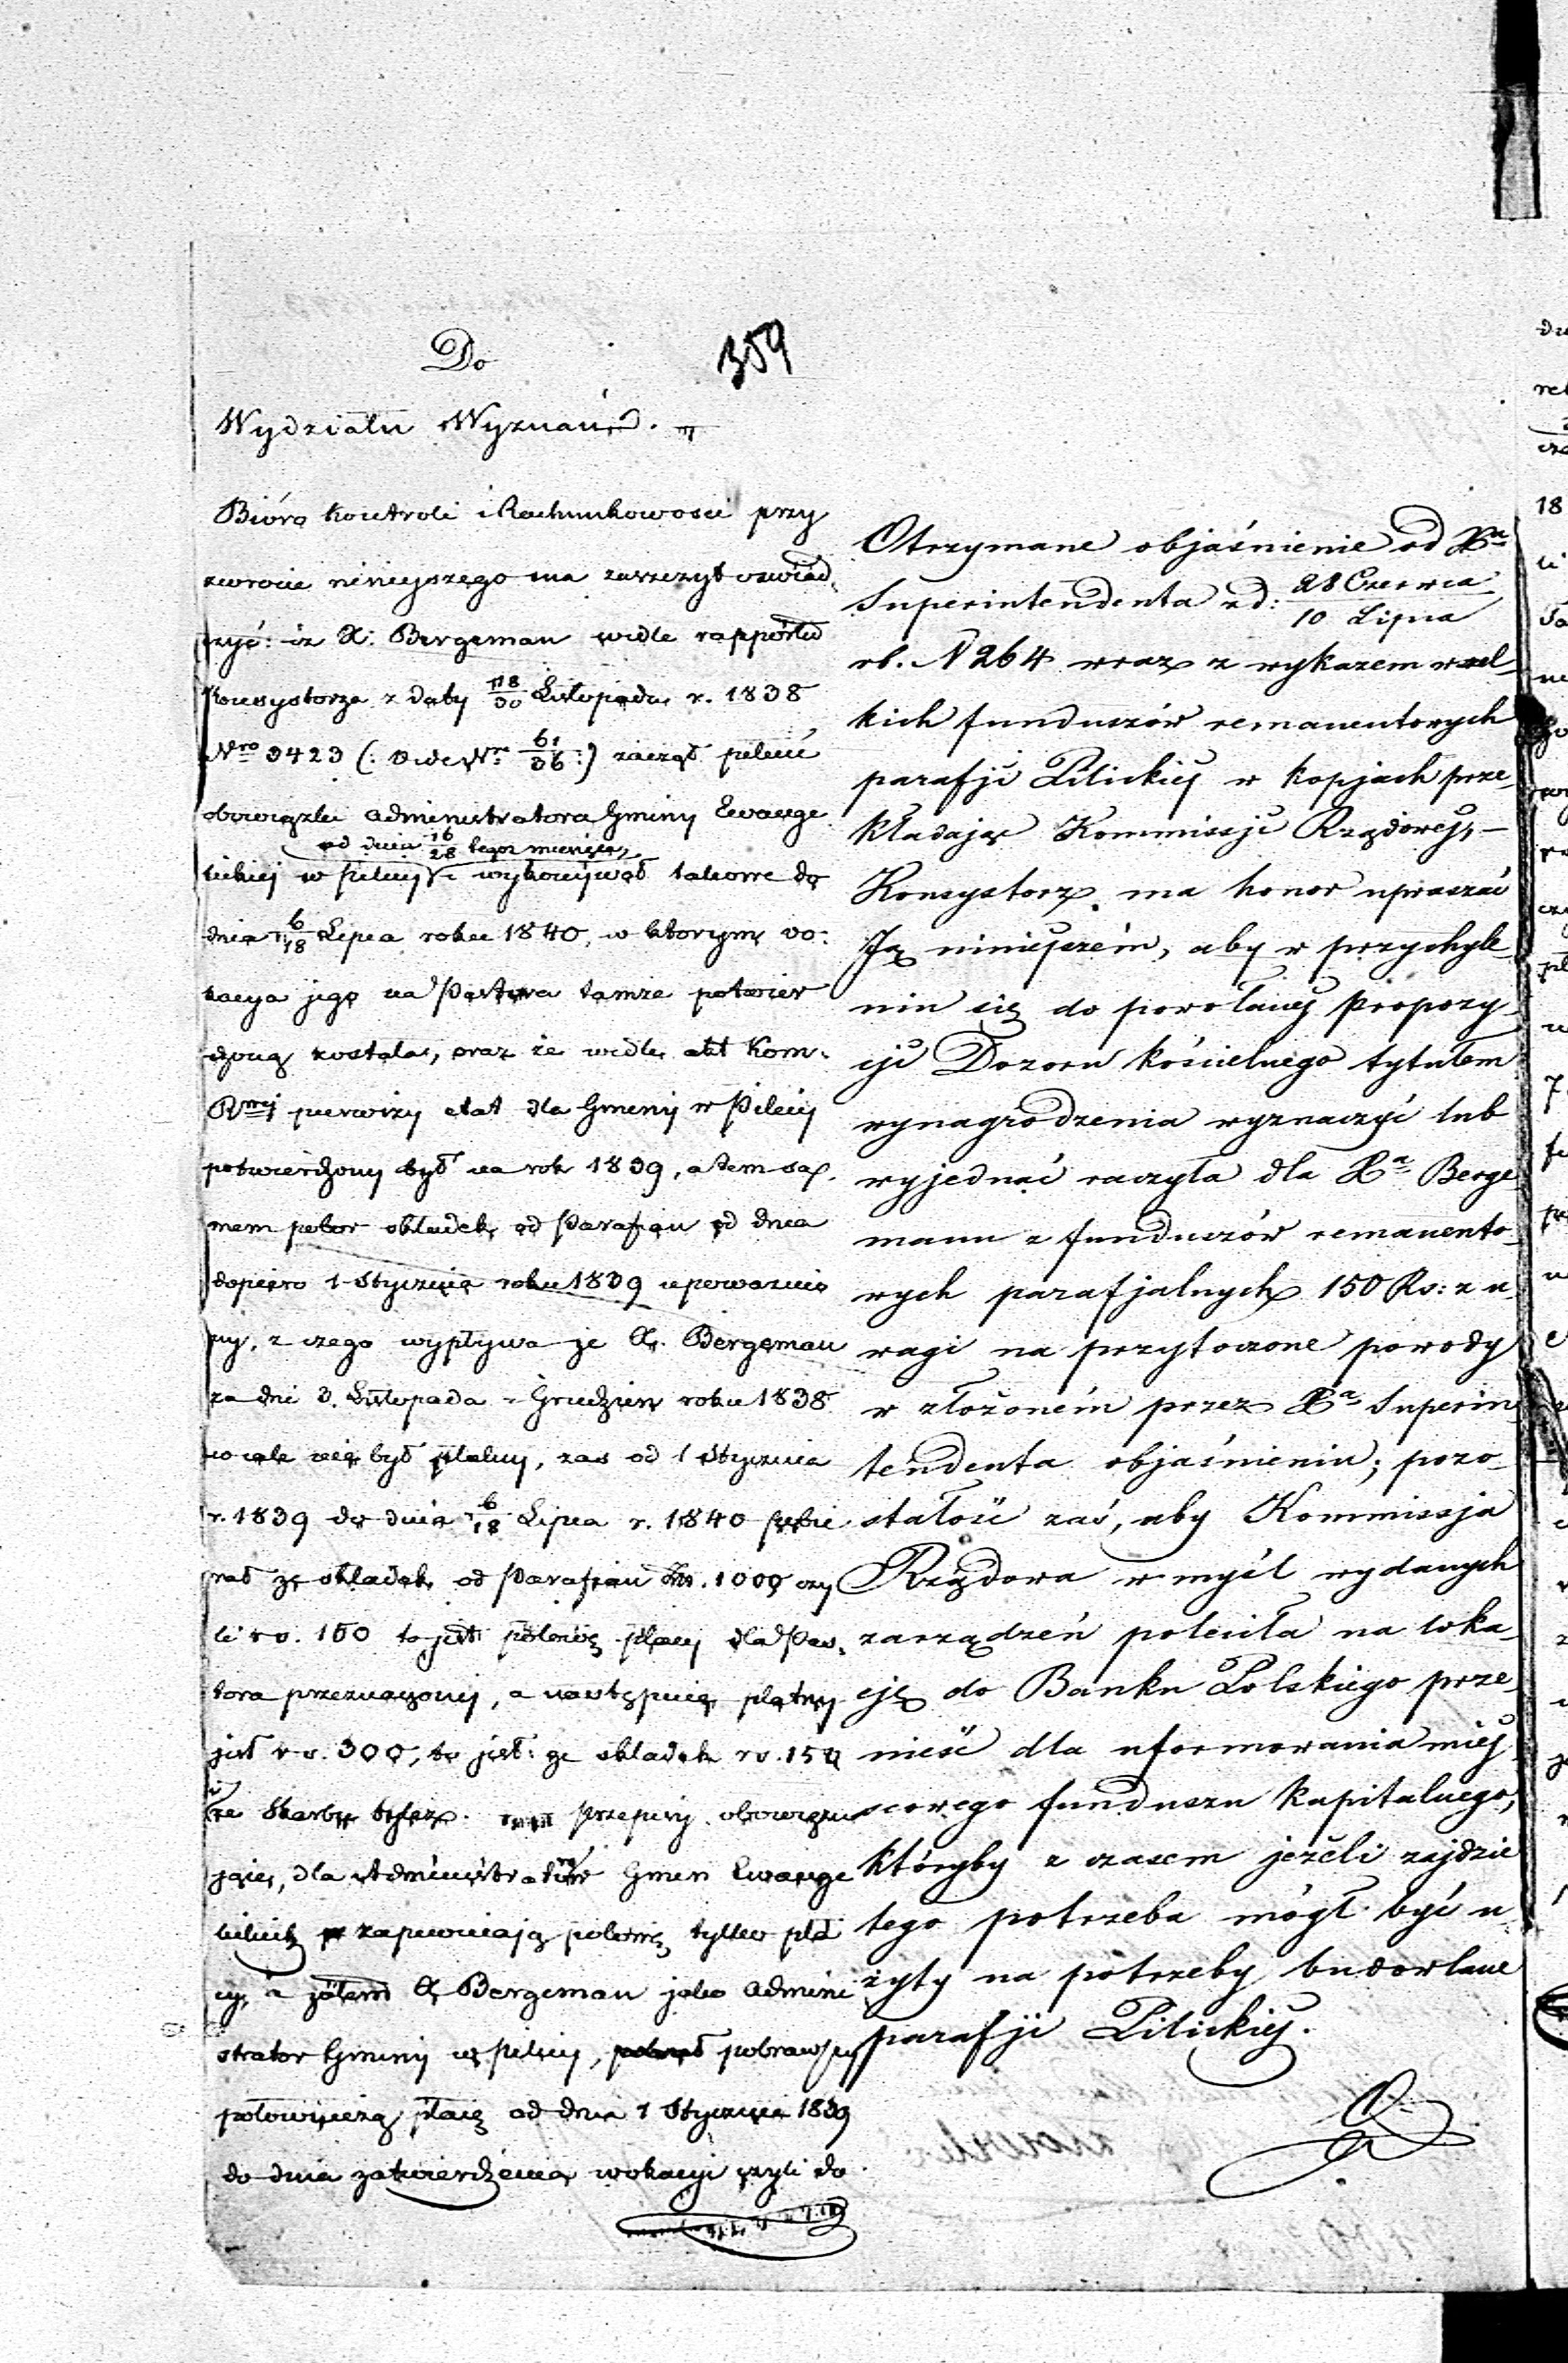 359
Do
Wydziału Wyznań.
Bióro Kontroli i Rachunkowosci przy
zwrocie niniejszego ma zaszczyt oswiad
czyć: iż X: Bergeman wedle rapportu
Konsystorza z daty 18/30 Listopada r. 1838
Nro 3423 (: vide Nr 61/36 :) zaczął pełnić
obowiązki Administratora Gminy Ewange
od dnia 16/28 tegoz miesiąca
lickiej w Pilicy i wykonywał takowe do
dnia 6/18 Lipca roku 1840, w ktorym vo:
kacya jego na Pastora tamze potwier
dzoną została, oraz że wedle akt Kom:
Rwej pierwszy etat dla Gminy w Pilicy
potwierdzony był na rok 1839, a tem sa
mem pobor składek od Parafian od dnia
dopiero 1 Stycznia roku 1839 upowaznio
ny, z czego wypływa że X. Bergeman
za dni 3. Listopada i Grudzień roku 1838
wcale nie był płatny, zas od 1 Stycznia
r. 1839 do dnia 6/18 Lipca r. 1840 pobie
rał ze składek od Parafian 1000 czy
li rs. 150 to jest połowę płacy dla Pas
tora przeznaczonej, a następnie płatny
jest rs. 300, to jest: ze składek rs. 150
i ze Skarbu tyleż. Przepisy obowiązu
jące, dla Administratorów Gmin Ewange
lickich zapewniają połowę tylko pła
cy, a zatem X. Bergeman jako Admini
strator Gminy w Pilicy, pobrawszy
połowiczną płacę od dnia 1 Stycznia 1839
do dnia zatwierdzenia wokacyi czyli do
Otrzymane objaśnienie od Xa
Superintendenta z d: 28 Czerwca / 10 Lipca
rb. N 264 wraz z wykazem wszel
kich funduszów remanentowych
parafji Pilickiej w kopjach prze
kładając Kommissji Rządowej, —
Konsystorz ma honor upraszać
Ją niniejszém, aby w przychyle
niu się do powołanej propozy
cji Dozoru kościelnego tytułem
wynagrodzenia wyznaczyć lub
wyjednać raczyła dla Xa Berge
mann z funduszów remanento
wych parafjalnych 150 Rs: z u
wagi na przytoczone powody
w złożoném przez Xa Superin
tendenta objaśnieniu; pozo
stałość zaś, aby Kommissja
Rządowa w myśl wydanych
zarządzeń poleciła na loka
cję do Banku Polskiego prze
nieść dla uformowania miej
scowego funduszu kapitalnego,
któryby z czasem jeżeli zajdzie
tego potrzeba mógł być u
żyty na potrzeby budowlane
parafji Pilickiej.